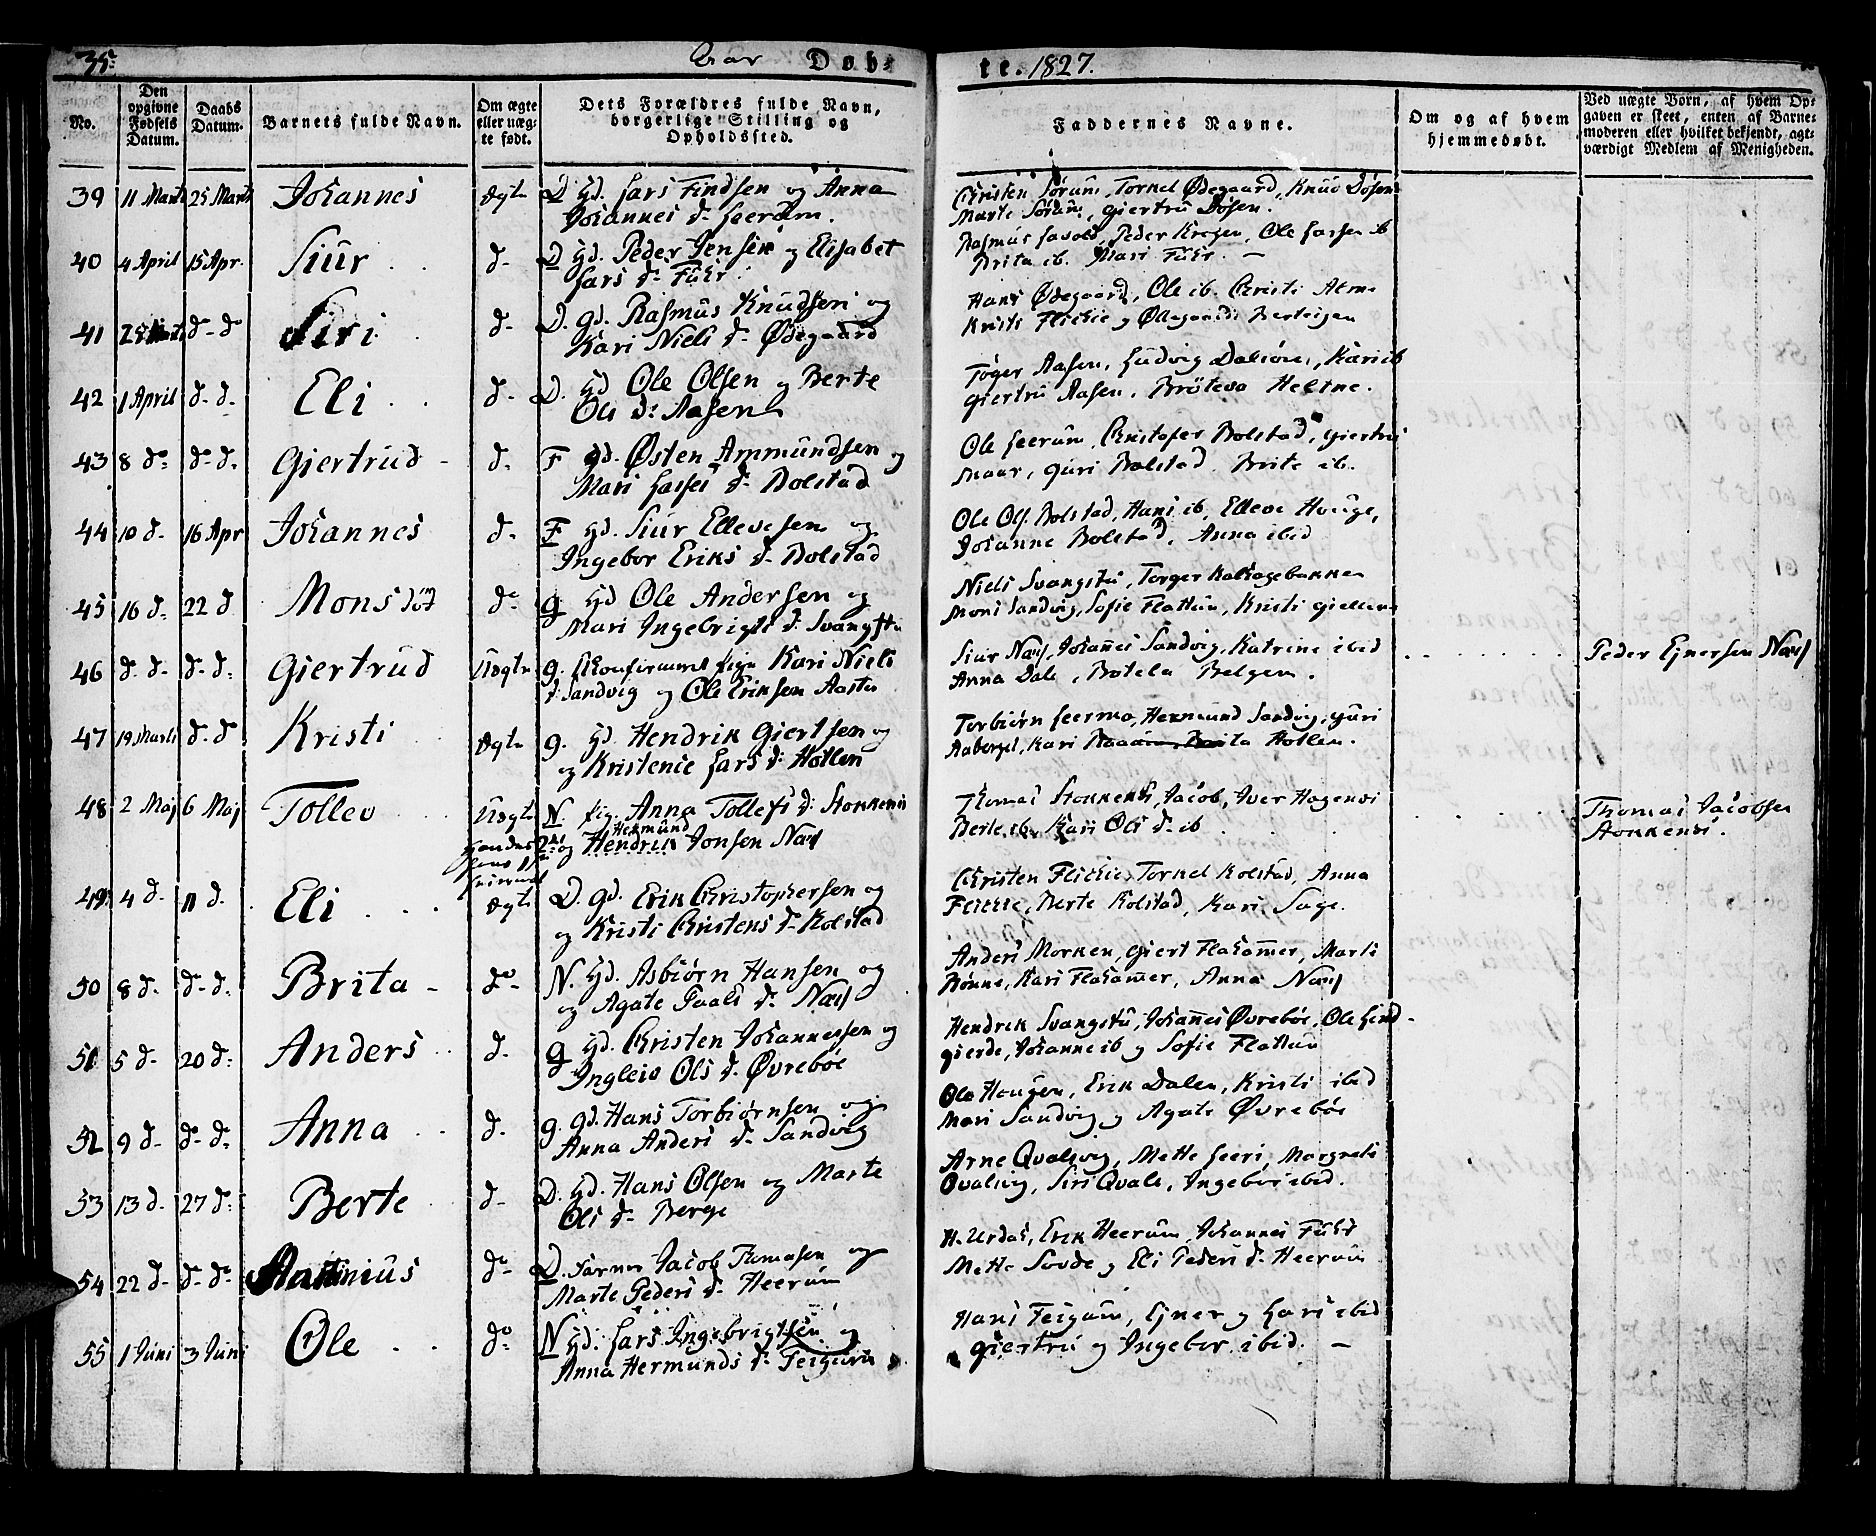 35.
Aar Døb-
te. 1827.
No.
Den opgivne Fødsels Datum.
Daabs Datum.
Barnets fulde Navn.
Om ægte eller uægte født.
Dets Forældres fulde Navn, borgerlige Stilling og Opholdssted.
Faddernes Navne.
Om og af hvem hjemmedøbt.
Ved uægte Børn, af hvem Opgaven er skeet, enten af Barnemoderen eller hvilket bekjendt, agtværdigt Medlem af Menigheden.
39 11 Marts 25 Marts Johannes Ægte D Gd. Lars Findsen og Anna
Johannes d. Heerum.
Christen Sørum, Tornel Ødegaard, Knud Døsen
Marte Sørum, Giertru Døsen.
40 4 April 15 Apr. Siur d- D Gd. Peder Jensen og Elisabet
Lars d. Fuhr.
Rasmus Savold, Peder Kragen, Ole Larsen ib
Brita ib. Mari Fuhr. —
41 25 Marts d- d Siri d- D. gd. Rasmus Knudsen og
Kari Niels d- Ødegaard
Hans Ødegaard, Ole ib. Christi Alme
42 1 April d- d. Eli d- D. Gd Ole Olsen og Berte
Ols d: Aasen
Tøger Aasen, Ludvig Dalsøren, Kari ib
Giertru Aasen, Brøteva Heltne.
43 8 d: d- d. Giertrud - d. F gd. Østen Ammundsen og
Mari Lasses d- Bolstad
Ole Heerum, Christofer Bolstad, Giertru
Maar, Guri Bolstad. Brite ib.
44 10 d- 16 Apr Johannes d- F Gd. Siur Ellevesen og
Ingebor Eriks d- Bolstad
Ole Ols. Bolstad, Hans ib, Elleve Houge,
Johanne Bolstad, Anna ibid
45 16 d: 22 d Mons død d- g Gd Ole Andersen og
Mari Ingebrigts d. Svangstu
Niels Svangstu, Torger Kalhagebakken
Mons Sandvig, Sofie Flattun, Kristi
46 d. d- d- d: Giertrud Uægte g. Ukonfirmeret pige Kari Niels
d. Sandvig og Ole Eriksen
Siur Næs, Johannes Sandvig, Katrine ibid
Anna Dale, Botela Belgen.
Peder Ejnersen Næs
47 19 Marts d- d Kristi Ægte g. Gd. Hendrik Giertsen og
og Kristence Lars d: Hotlen
Torbiørn Heermo, Hermund Sandvig, Guri
Aaberget, Kari Brita Hotlen.
48 2 Maj 6 Maj Tollev Uægte N. pig. Anna Tollefs d: Stokkenes
og Hendrik Hermund Jonsen Næs
Thomas Stokkenes, Jacob, Iver Hagenes
Berte ib, Kari Ols d- ib
Thomas Jacobsen
Stokkenes.
49 4 d- 11 d. Eli Ægte D. gd. Erik Christophersen og
og Kristi Christens d- Kolstad
Christen Flickie, Tornel Kolstad, Anna
Flickie, Berte Kolstad, Kari Sage.
50 8 d- d- d. Brita - do- N. Gd. Asbiørn Hansen og
og Agate Povels d. Næs
Anders Morken, Giert Flahammer, Marti
Rønne, Kari Flahammer, Anna Næs
51 5 d- 20 d: Anders d. g Gd. Christen Johannessen og
Ingleiv Ols d. Øvrebøe
Hendrik Svangstu, Johannes Øvrebøe, Ole Lind-
gierde, Johanne ib og Sofie Flattun
52 9 d- d- d- Anna d. g. gd. Hans Torbiørnsen og
Anna Anders d- Sandvig
Ole Haugen, Erik Dalen, Kristi ibid
Mari Sandvig og Agate Øvrebøe
53 13 d- 27 d: Berte d- D. Gd. Hans Olsen og Marte
Ols d- Berge
Arne Qvalsvig, Mette Heeri, Margrete
Qvalsvig, Siri Qvale, Ingebor ibid.
54 22 d- d- d- do- D. Jacob Thomasen og
Marte Peders d. Heerum
H. Urdal, Erik Heerum, Johannes Fuhr
Mette Sovde og Eli Peders d. Heerum
55 1 Juni 3 Juni Ole do- N Gd. Lars Ingebrigtsen og
Anna Hermunds d. Feigum
Hans Feigum, Ejner og Lars ibid
Giertru og Ingebor ibid. —